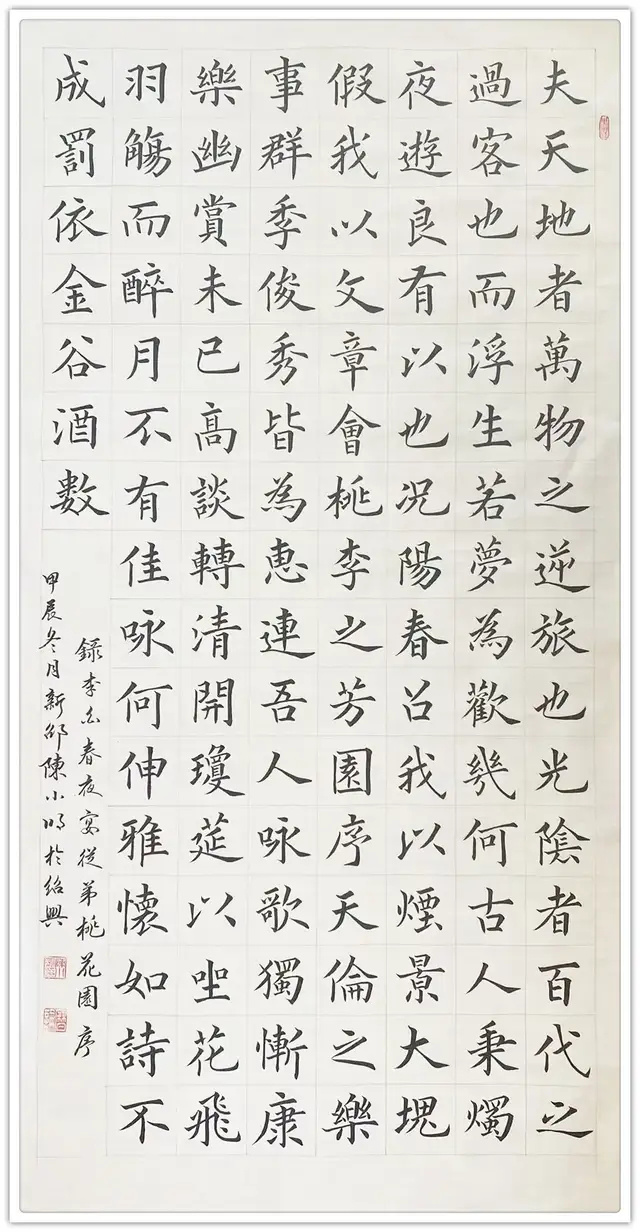 夫天地者萬物之逆旅也光陰者百代之
過客也而浮生若夢為歡幾何古人秉燭
夜遊良有以也况陽春召我以煙景大塊
假我以文章會桃李之芳園序天倫之樂
事群季俊秀皆為惠連吾人咏歌獨慚康
樂幽賞未已高談轉清開瓊筵以坐花飛
羽觴而醉月不有佳咏何伸雅懷如詩不
成罰依金谷酒數
錄李白春夜宴從弟桃花園序
甲辰冬月新邵陳小明於紹興